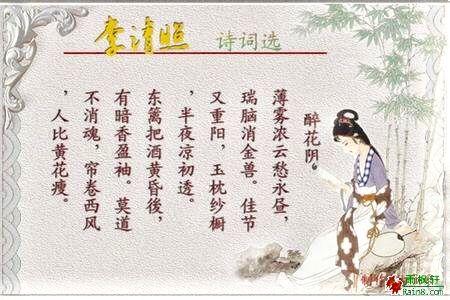 李清照 诗词选
醉花阴。
薄雾浓云愁永昼，
瑞脑消金兽。佳节
又重阳，玉枕纱橱
，半夜凉初透。
东篱把酒黄昏後，
有暗香盈袖。莫道
不消魂，帘卷西风
，人比黄花瘦。
雨枫轩
Rain8.com